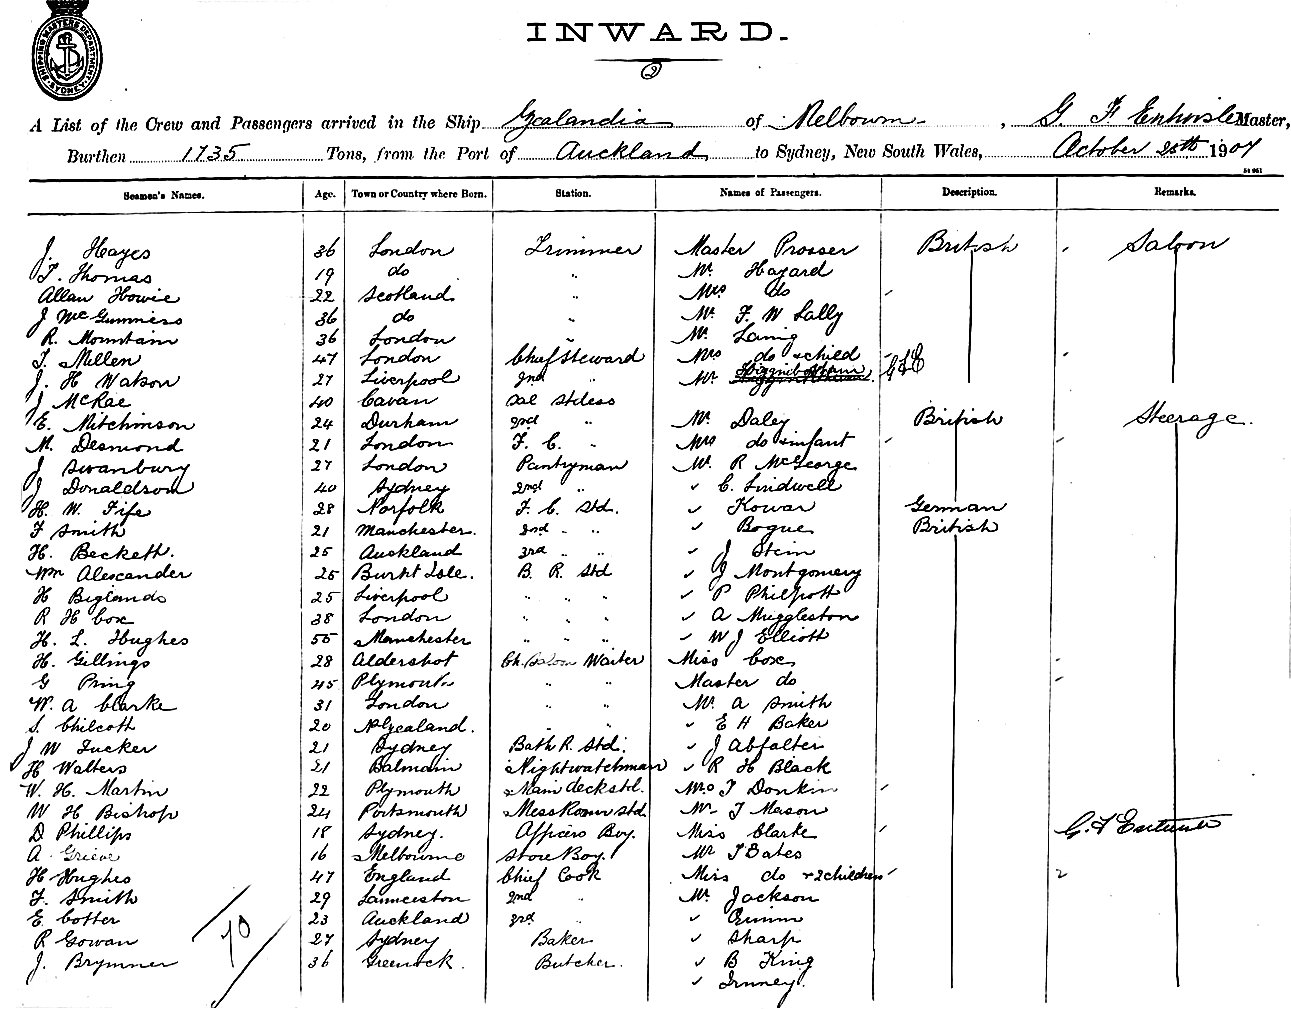 INWARD.
2
SHIPPING MASTERS DEPARTMENT SYDNEY
A List of the Crew and Passengers arrived in the Ship Zealandia of Melbourne, G. F. Master,
Burthen 1735 Tons, from the Port of Auckland to Sydney, New South Wales, October 20th 1907
Seamen's Names. Age. Town or Country where Born. Station. Names of Passengers. Description. Remarks.
J. Hayes 36 London Trimmer Master Prosser British Saloon
T. Thomas 19 do " Mr Hazard
Allan Howie 22 Scotland " Mrs do
J McGuinness 36 do " Mr F. W Lally
R. Mountain 36 London " Mr Laing
T. Millen 47 London Chief Steward Mrs do & child
J. H Watson 27 Liverpool 2nd " Mr Higginbotham G F E
J McRae 40 Cavan Sal Stdess
E. Mitchinson 24 Durham 2nd " Mr Daley British Steerage.
M. Desmond 21 London F. C. " Mrs do & infant
J Swanbury 27 London Pantryman Mr. R McGeorge
J Donaldson 40 Sydney 2nd " " C. Lindwell
H. W. Fife 28 Norfolk F. C. Std. " Kowar German
F Smith 21 Manchester. 2nd " " " Bogue British
H. Beckett. 25 Auckland 3rd " " " J Stein
Wm Alexander 25 Burnt Isle. B. R. Std " J Montgomery
H Biglands 25 Liverpool " " " " P Philpott
R H Cox 38 London " " " " A Muggleston
H. L. Hughes 55 Manchester " " " " W J Elliott
H. Gillings 28 Aldershot Ch. Saloon Waiter Miss Cox
G Pring 45 Plymouth " " Master do
W. A Clarke 31 London " " Mr A Smith
S. Chilcott 20 N Zealand. " " " E H Baker
J W Tucker 21 Sydney Bath R. Std. " J Abfalter
H Walters 21 Balmain Nightwatchman " R H Black
W. H. Martin 22 Plymouth Main deck std. Mrs T Donkin
W H Bishop 24 Portsmouth Mess Room std. Mr T Mason
D Phillips 18 Sydney. Officers Boy. Miss Clarke G. F
A Grieve 16 Melbourne Store Boy. Mr T Bates
H Hughes 47 England Chief Cook Miss do & 2 children 2
F. Smith 29 Launceston 2nd " Mr. Jackson
E Cotter 23 Auckland 3rd " " Quinn
R Gowan 27 Sydney Baker " Sharp
J. Brymner 36 Greenock. Butcher. " B King
70